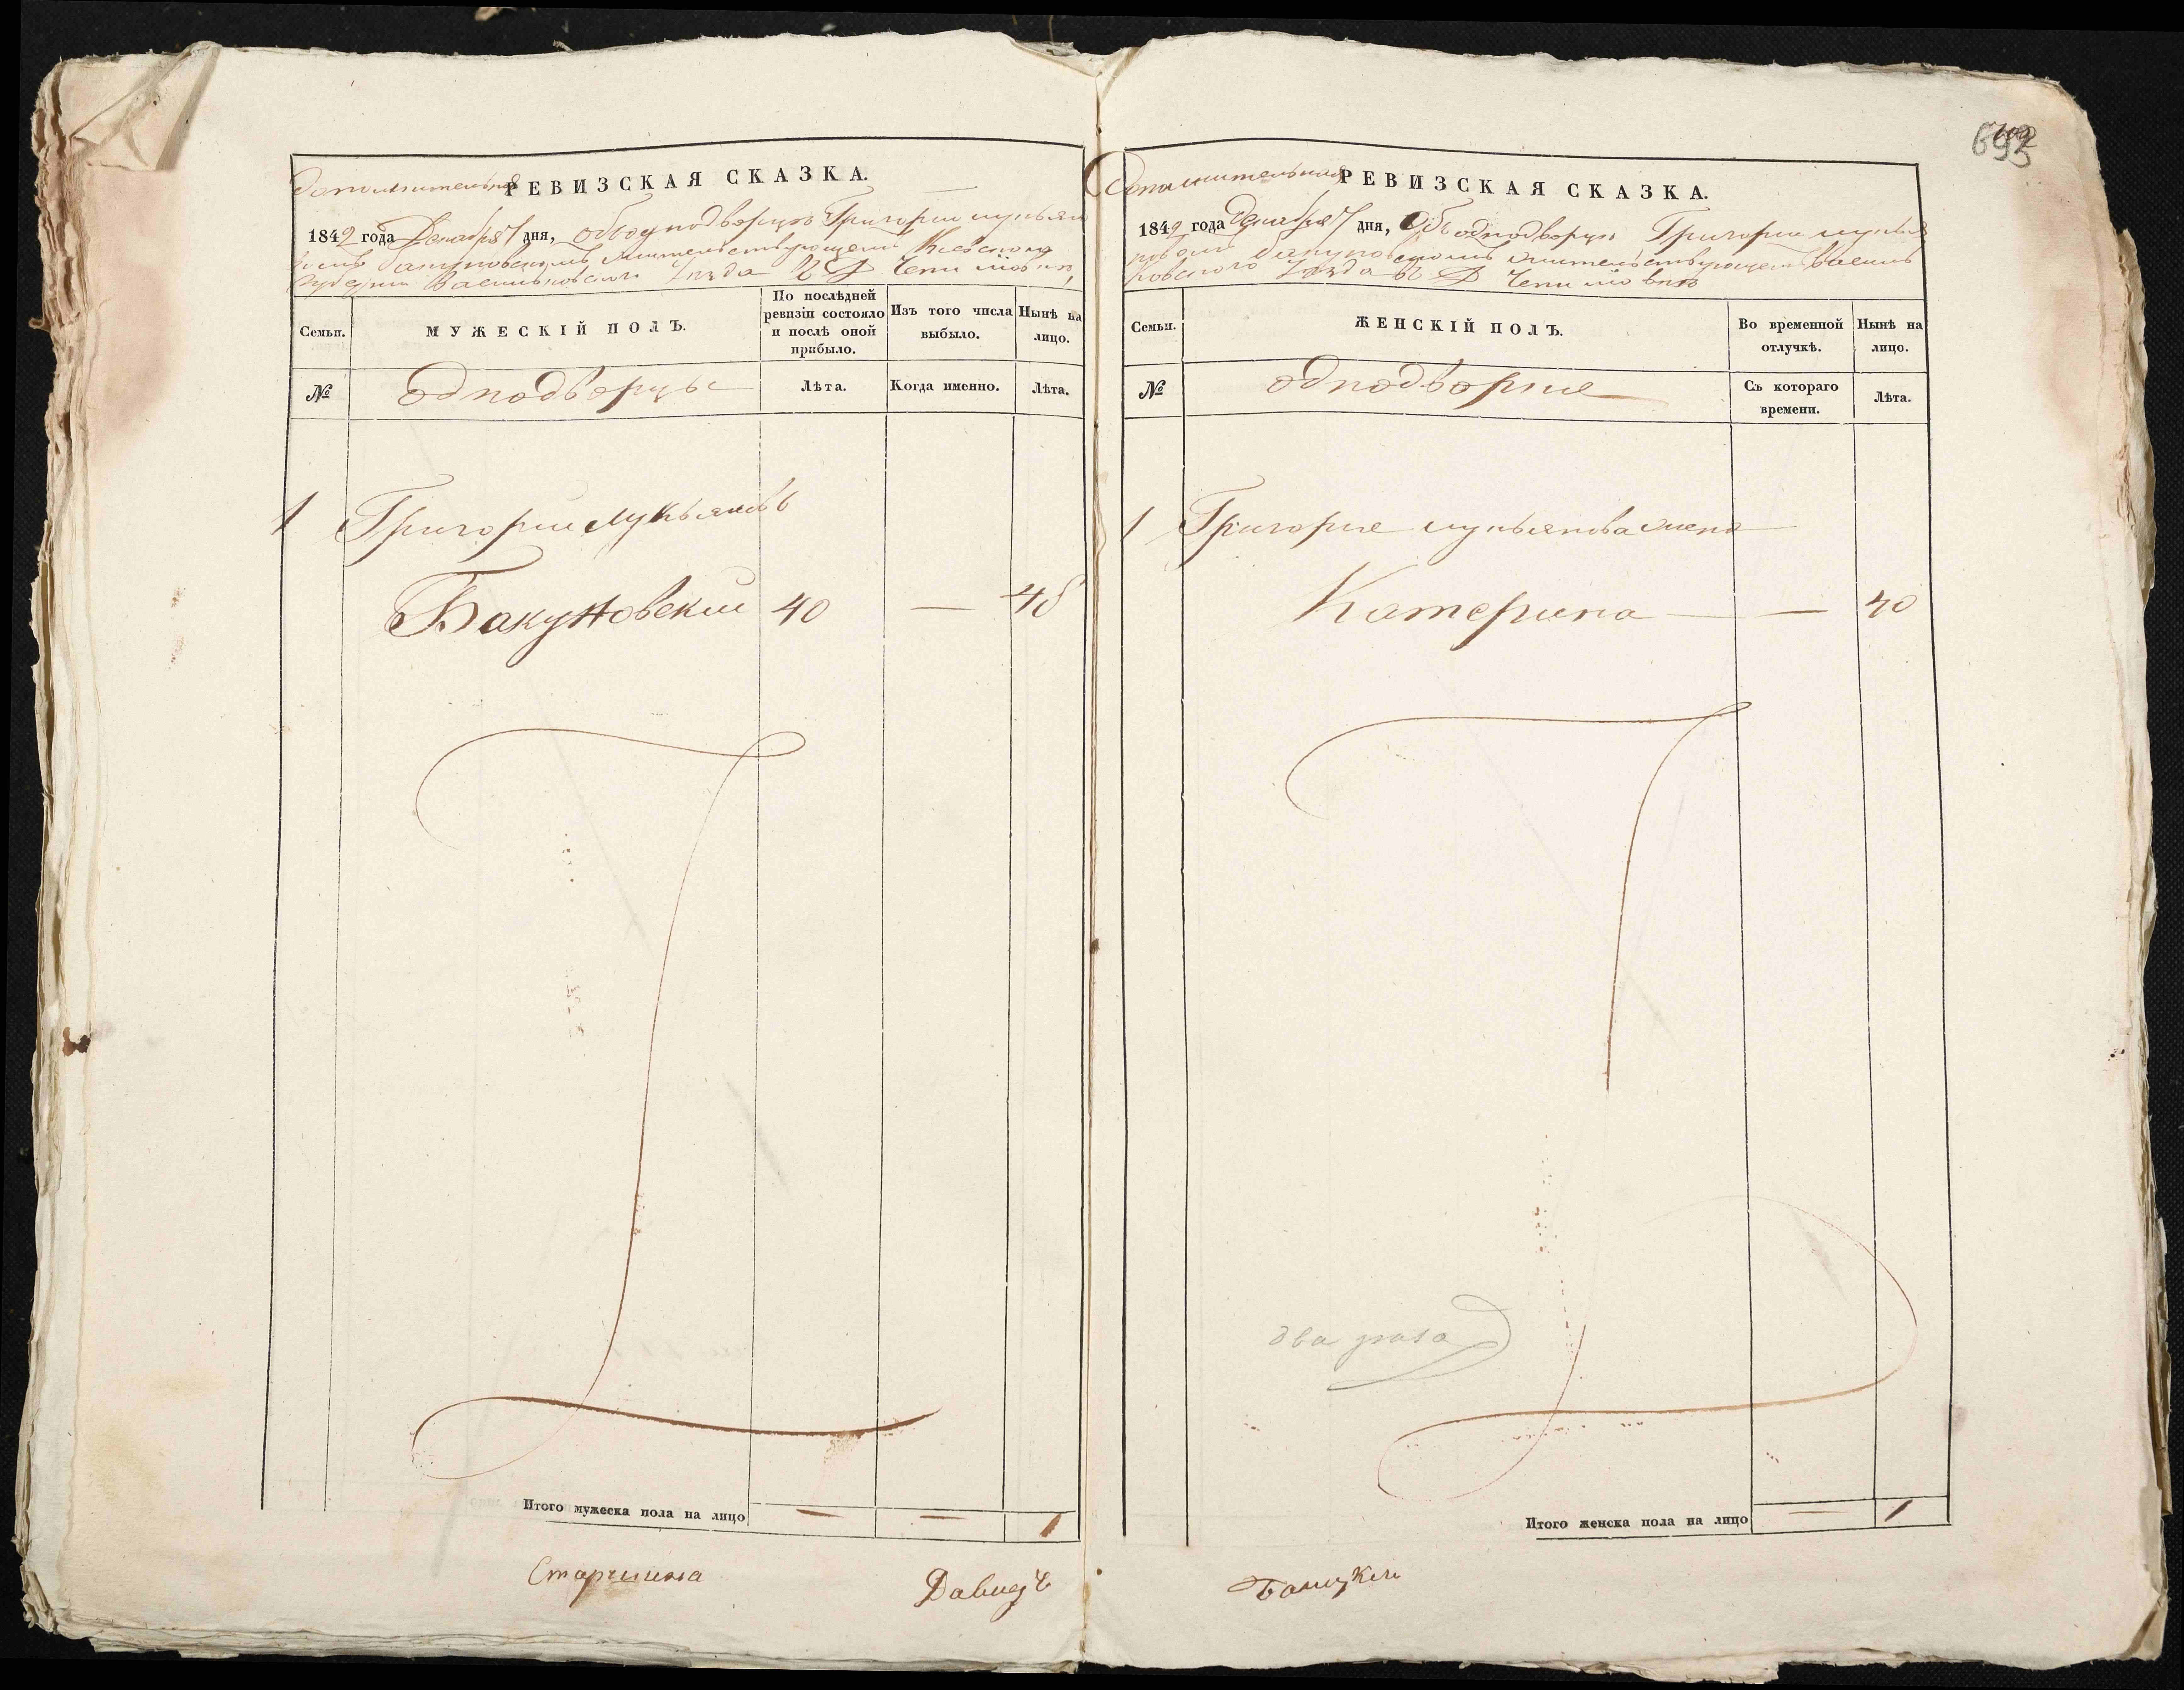 Дополнительная РЕВИЗСКАЯ СКАЗКА.
1842 года Декабря 7 дня, ободнодворцѣ Григории лукьяно
вомъ бакуновскомъ жительствующемъ Кіевской
Губернии Васильковскаго уезда в Д
Семьи.
МУЖЕСКІЙ ПОЛЪ.
По послѣдней ревизіи состояло и послѣ оной прибыло.
Изъ того числа выбыло.
Нынѣ на лицо.
№
однодворцы
Лѣта.
Когда именно.
Лѣта.
1 Григории лукьяновъ
Бакуновскии 40 — 48
Итого мужеска пола на лицо — — 1
Старшина Давидъ
Дополнительная РЕВИЗСКАЯ СКАЗКА.
1842 года Декабря 7 дня, Объ однодворцѣ Григории лукья
новомъ бакуновскомъ жительствующемъ василь
ковского уезда въ Д
Семьи.
ЖЕНСКІЙ ПОЛЪ.
Во временной отлучкѣ.
Нынѣ на лицо.
№
однодворки
Съ котораго времени.
Лѣта.
1 Григория лукьянова жена
Катерина — — 40
два раза
Итого женска пола на лицо — 1